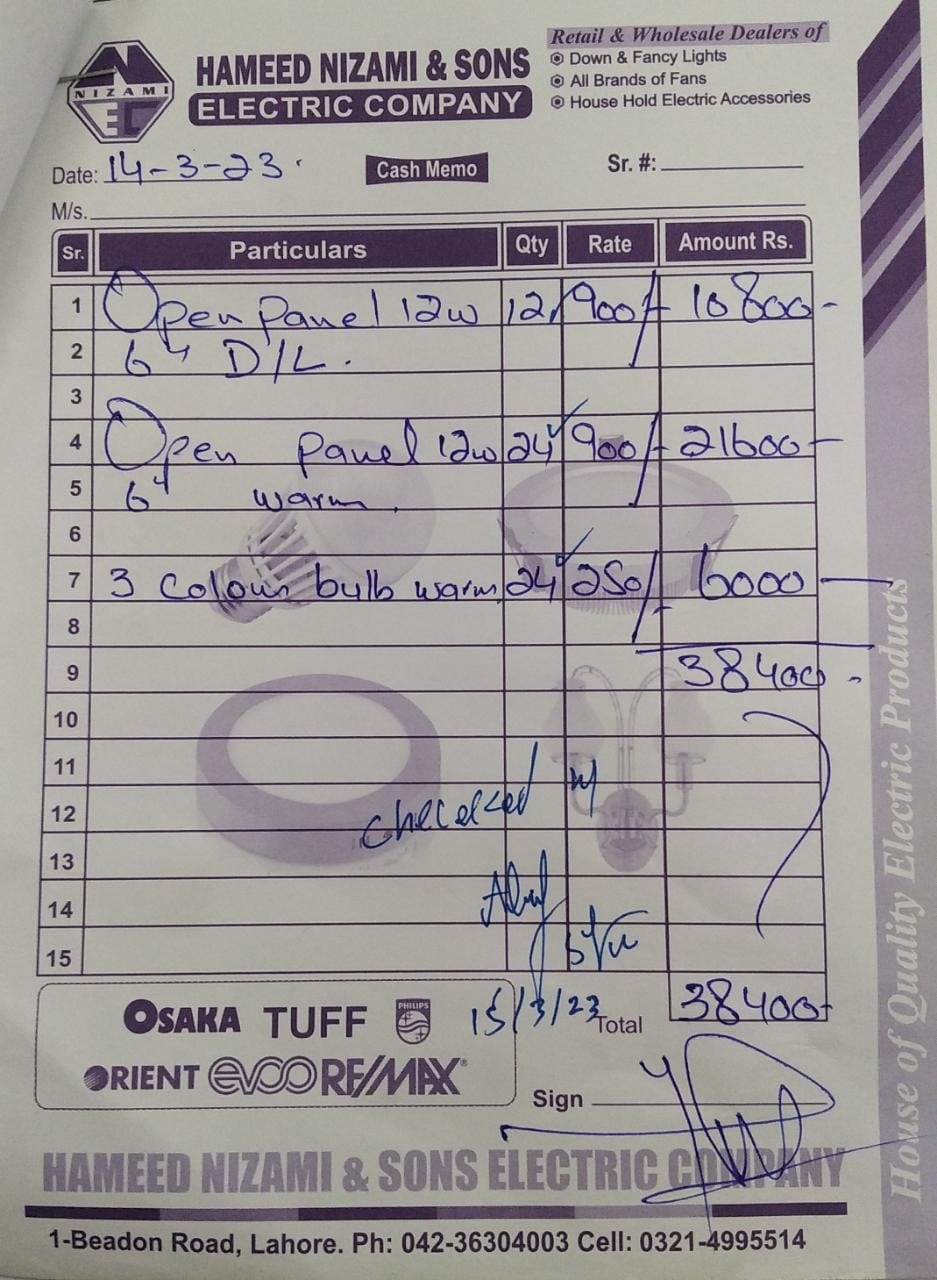 NIZAMI
EC
HAMEED NIZAMI & SONS
ELECTRIC COMPANY
Retail & Wholesale Dealers of
Down & Fancy Lights
All Brands of Fans
House Hold Electric Accessories
Date: 14-3-23
Cash Memo
Sr. #:
M/s.
Sr. Particulars Qty Rate Amount Rs.
1 Open Panel 12w 12 900/- 10800-
2 6" D/L.
3
4 Open panel 12w 24 900/- 21600-
5 6" warm.
6
7 3 Colour bulb warm 24 250/- 6000-
8
9 38400-
10
11
12 checked
13
14
15
15/3/23
Total 38400-
OSAKA TUFF PHILIPS
ORIENT evoo RE/MAX
Sign
HAMEED NIZAMI & SONS ELECTRIC COMPANY
1-Beadon Road, Lahore. Ph: 042-36304003 Cell: 0321-4995514
House of Quality Electric Products